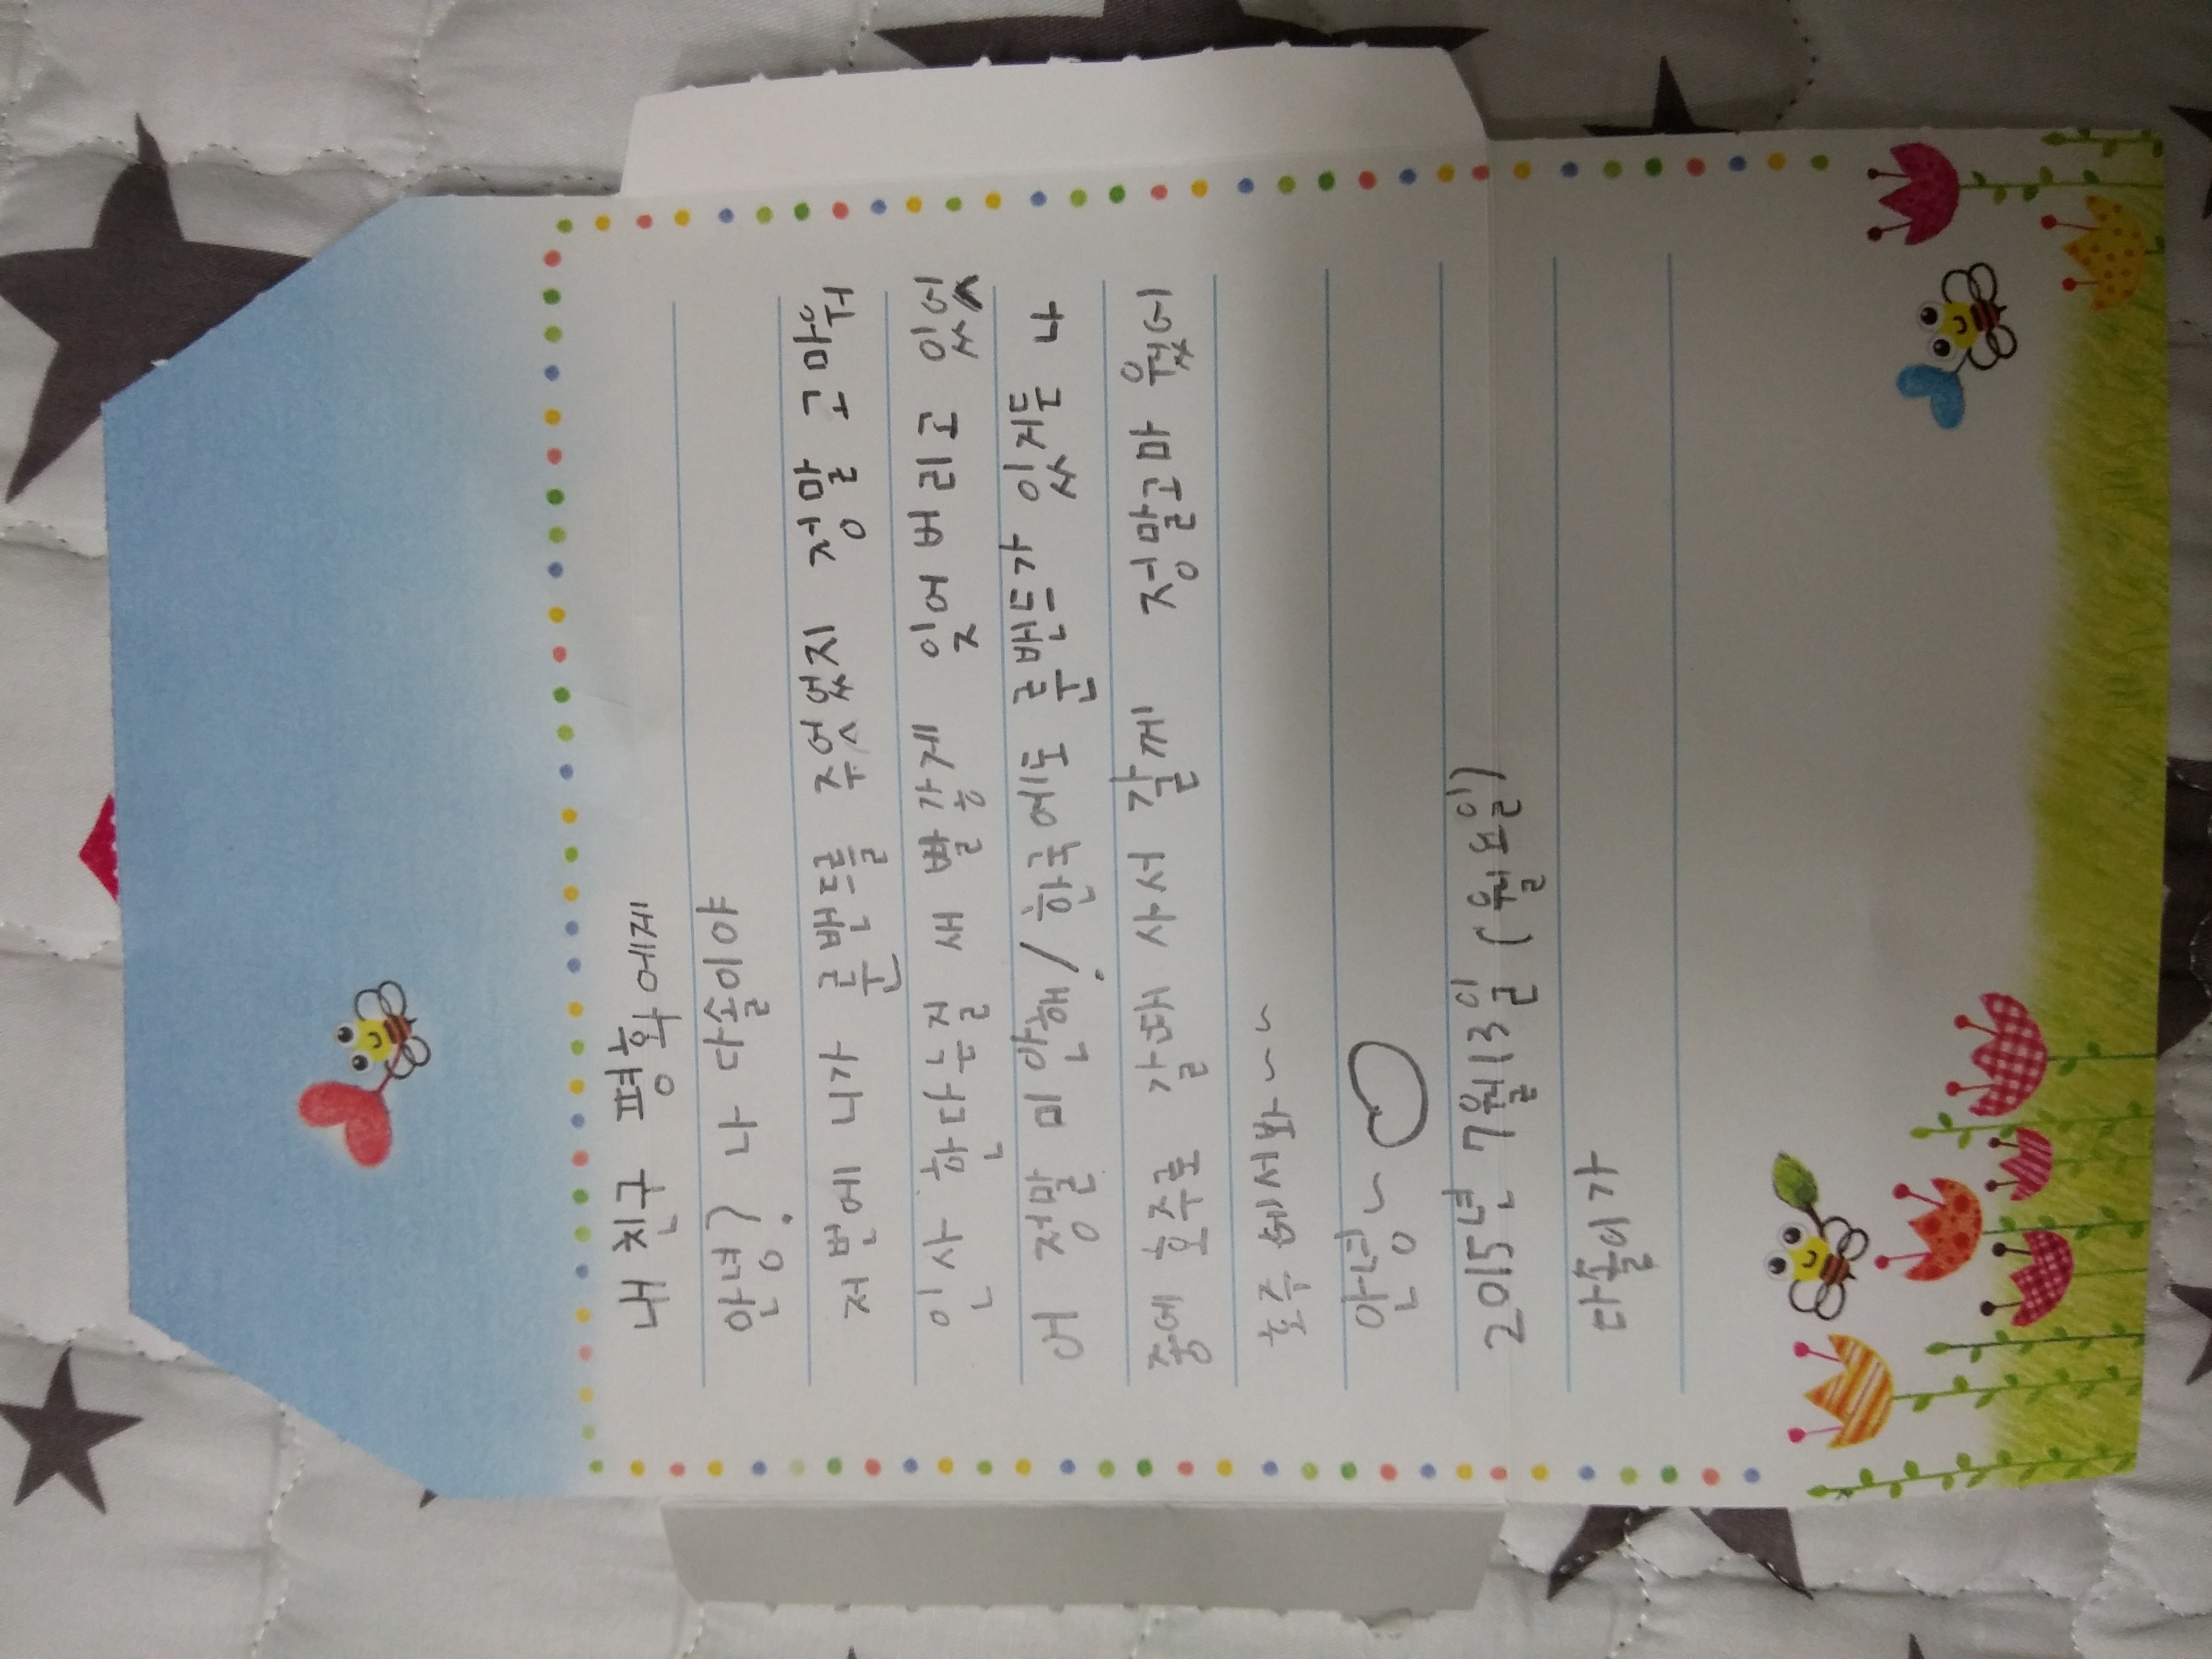 내 친구 평화에게
안녕? 나 다솔이야
저번에 니가 룬밴드를 주었었지 정말 고마워
인사 한다는걸 새 빨갛게 잊어 버리고 있었
어 정말 미안해! 한국에도 룬밴드가 있거든 나
중에 호주로 갈때 사서 갈께 정말고마 웠어
호주 에서봐~~
안녕~
2015년 7월13일 (월요일)
다솔이가